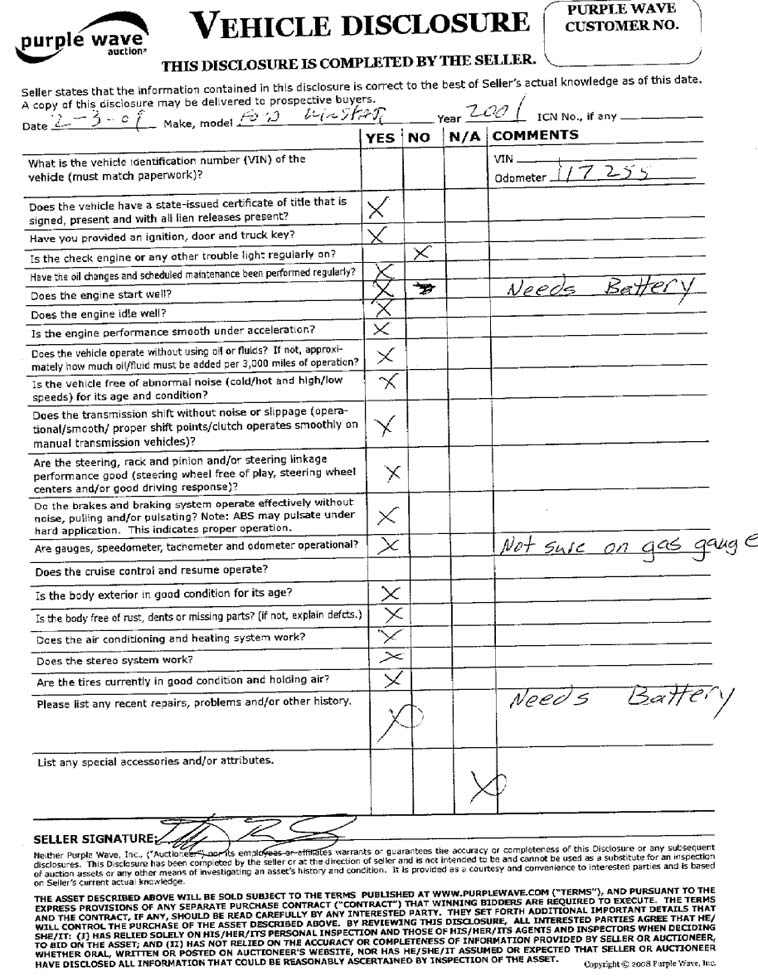 purple wave
auction
VEHICLE DISCLOSURE
PURPLE WAVE
CUSTOMER NO.
THIS DISCLOSURE IS COMPLETED BY THE SELLER.
Seller states that the information contained in this disclosure is correct to the best of Seller's actual knowledge as of this date.
A copy of this disclosure may be delivered to prospective buyers.
Date 2-3-09 Make, model Ford Winstar Year 2001 ICN No., if any
YES NO N/A COMMENTS
What is the vehicle identification number (VIN) of the
vehicle (must match paperwork)?
VIN
Odometer 117255
Does the vehicle have a state-issued certificate of title that is
signed, present and with all lien releases present? X
Have you provided an ignition, door and truck key? X
Is the check engine or any other trouble light regularly on? X
Have the oil changes and scheduled maintenance been performed regularly? X
Does the engine start well? X Needs Battery
Does the engine idle well? X
Is the engine performance smooth under acceleration? X
Does the vehicle operate without using oil or fluids? If not, approxi-
mately how much oil/fluid must be added per 3,000 miles of operation? X
Is the vehicle free of abnormal noise (cold/hot and high/low
speeds) for its age and condition? X
Does the transmission shift without noise or slippage (opera-
tional/smooth/ proper shift points/clutch operates smoothly on
manual transmission vehicles)? X
Are the steering, rack and pinion and/or steering linkage
performance good (steering wheel free of play, steering wheel
centers and/or good driving response)? X
Do the brakes and braking system operate effectively without
noise, pulling and/or pulsating? Note: ABS may pulsate under
hard application. This indicates proper operation. X
Are gauges, speedometer, tachometer and odometer operational? X Not sure on gas gauge
Does the cruise control and resume operate?
Is the body exterior in good condition for its age? X
Is the body free of rust, dents or missing parts? (if not, explain defcts.) X
Does the air conditioning and heating system work? X
Does the stereo system work? X
Are the tires currently in good condition and holding air? X
Please list any recent repairs, problems and/or other history. X Needs Battery
List any special accessories and/or attributes. X
SELLER SIGNATURE:
Neither Purple Wave, Inc., ("Auctioneer") nor its employees or affiliates warrants or guarantees the accuracy or completeness of this Disclosure or any subsequent
disclosures. This Disclosure has been completed by the seller or at the direction of seller and is not intended to be and cannot be used as a substitute for an inspection
of auction assets or any other means of investigating an asset's history and condition. It is provided as a courtesy and convenience to interested parties and is based
on Seller's current actual knowledge.
THE ASSET DESCRIBED ABOVE WILL BE SOLD SUBJECT TO THE TERMS PUBLISHED AT WWW.PURPLEWAVE.COM ("TERMS"), AND PURSUANT TO THE
EXPRESS PROVISIONS OF ANY SEPARATE PURCHASE CONTRACT ("CONTRACT") THAT WINNING BIDDERS ARE REQUIRED TO EXECUTE. THE TERMS
AND THE CONTRACT, IF ANY, SHOULD BE READ CAREFULLY BY ANY INTERESTED PARTY. THEY SET FORTH ADDITIONAL IMPORTANT DETAILS THAT
WILL CONTROL THE PURCHASE OF THE ASSET DESCRIBED ABOVE. BY REVIEWING THIS DISCLOSURE, ALL INTERESTED PARTIES AGREE THAT HE/
SHE/IT: (I) HAS RELIED SOLELY ON HIS/HER/ITS PERSONAL INSPECTION AND THOSE OF HIS/HER/ITS AGENTS AND INSPECTORS WHEN DECIDING
TO BID ON THE ASSET; AND (II) HAS NOT RELIED ON THE ACCURACY OR COMPLETENESS OF INFORMATION PROVIDED BY SELLER OR AUCTIONEER,
WHETHER ORAL, WRITTEN OR POSTED ON AUCTIONEER'S WEBSITE, NOR HAS HE/SHE/IT ASSUMED OR EXPECTED THAT SELLER OR AUCTIONEER
HAVE DISCLOSED ALL INFORMATION THAT COULD BE REASONABLY ASCERTAINED BY INSPECTION OF THE ASSET.
Copyright © 2008 Purple Wave, Inc.